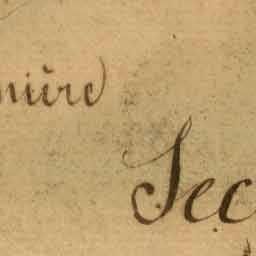 mière
Sec